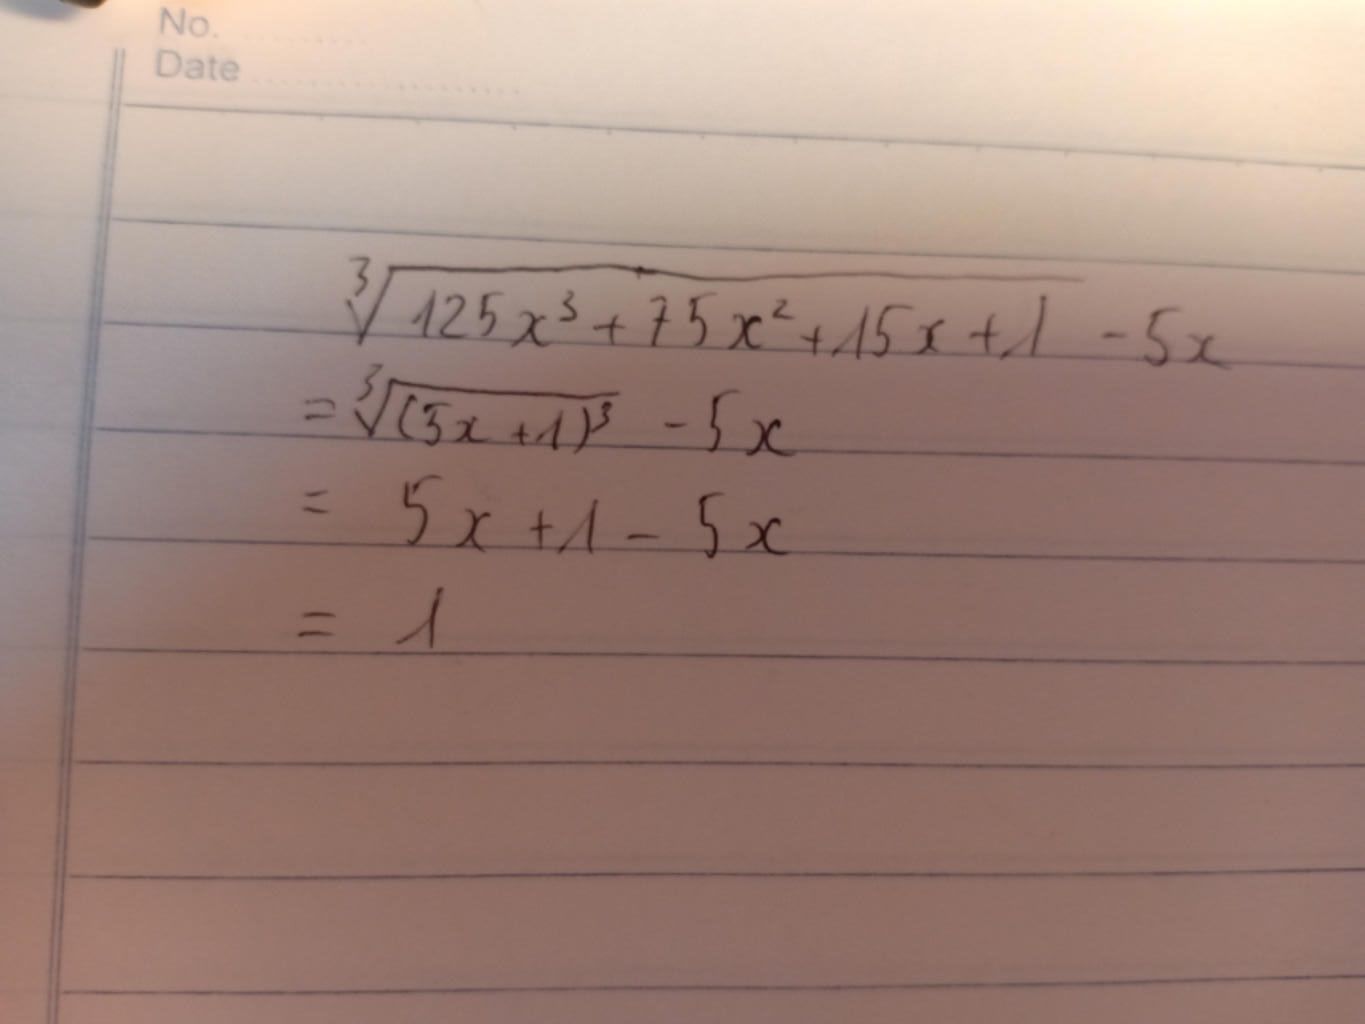 No.
Date
∛(125x³ + 75x² + 15x + 1) - 5x
= ∛((5x + 1)³) - 5x
= 5x + 1 - 5x
= 1